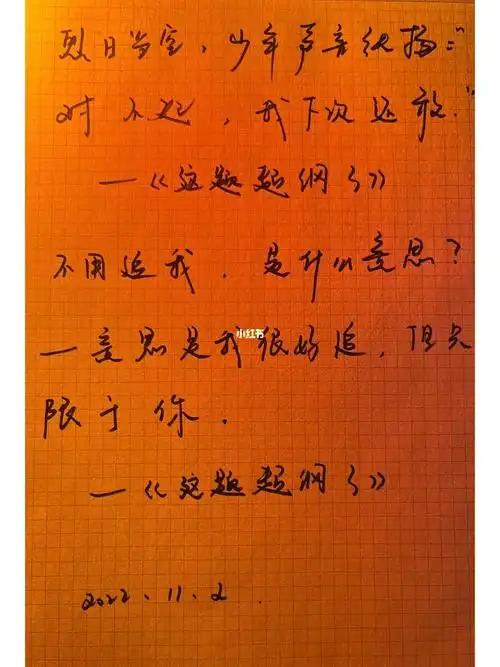 烈日当空，少年声音纯扬："
对不起，我下次还敢."
—《这题超纲了》
不用追我，是什么意思？
小红书
—意思是我很好追，但只
限于你.
—《这题超纲了》
2022、11、2.